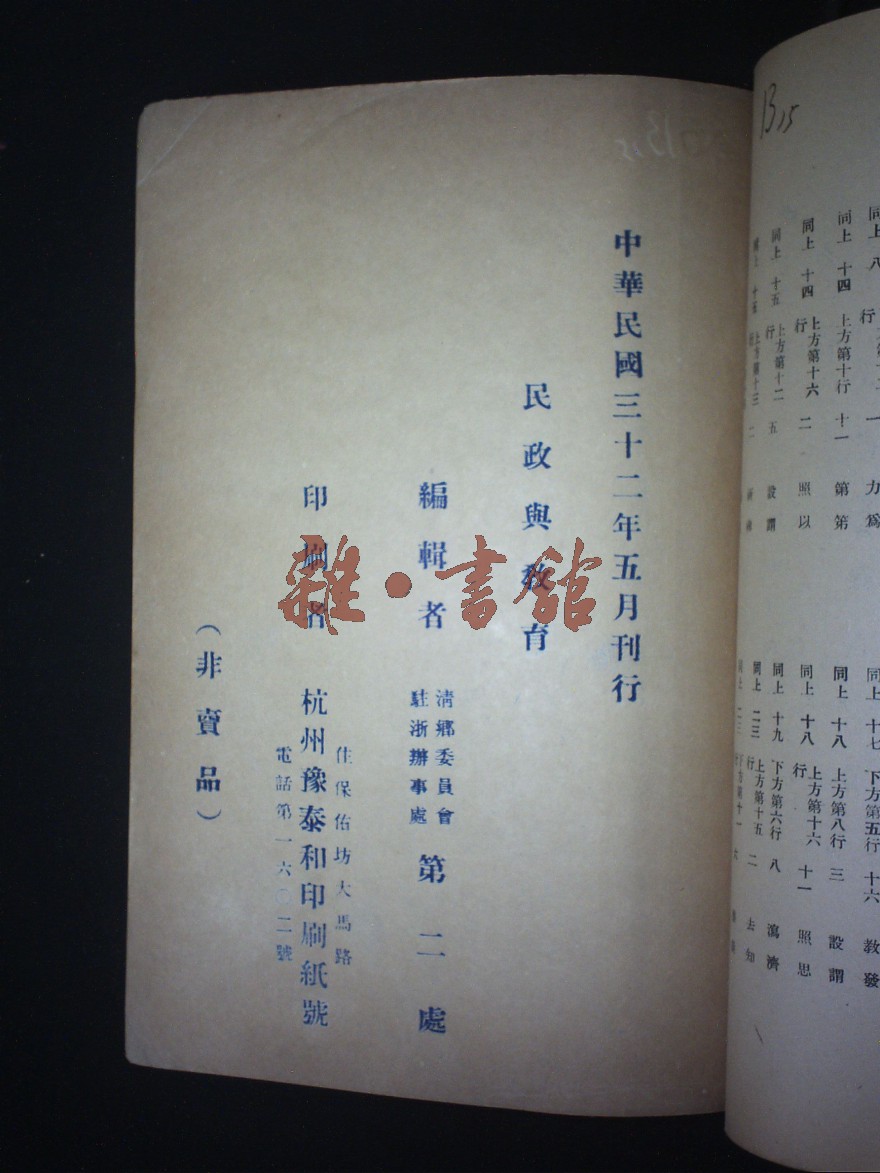 B15
同上 八 行
同上 十四 上方第十行 十一 第 第
同上 十四 行 上方第十六 二 照 以
同上 十五 行 上方第十二 五 設 謂
同上 十七 下方第五行 十六 教 發
同上 十八 上方第八行 三 設 謂
同上 十八 行 上方第十六 十一 照 思
同上 十九 下方第六行 八 瀉 濟
同上 二三 行 上方第十五 二 去 知
中華民國三十二年五月刊行
民政與教育
編輯者 清鄉委員會駐浙辦事處 第二處
印刷者 杭州豫泰和印刷紙號
住保佑坊大馬路
電話第一六〇二號
（非賣品）
雜·書館